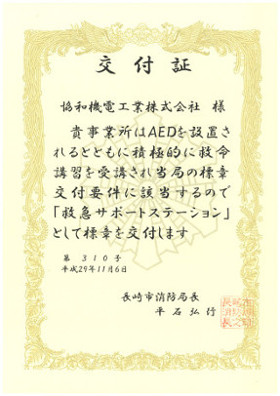 交付証
協和機電工業株式会社 様
貴事業所はAEDを設置さ
れるとともに積極的に救命
講習を受講され当局の標章
交付要件に該当するので
「救急サポートステーション」
として標章を交付します
第 310号
平成29年11月6日
長崎市消防局長
平石弘行